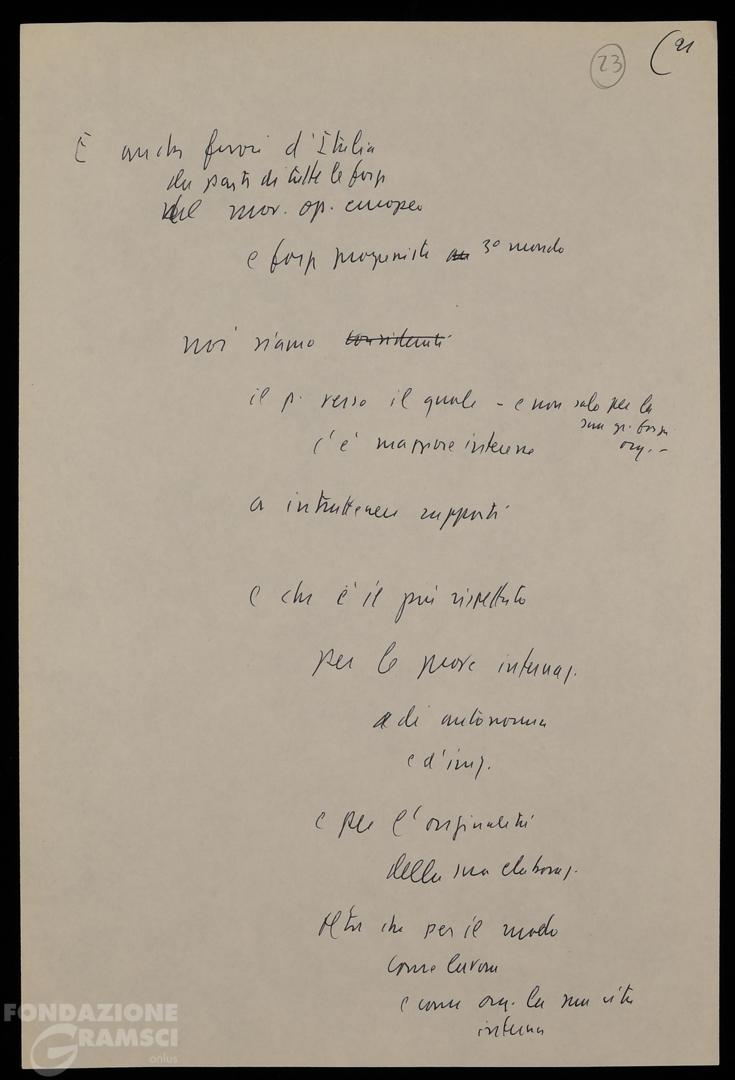 23 (21
E anche fuori d'Italia
da parti di tutte le forz
del mov. op. europeo
e forz progressiste 3° mondo
noi siamo considerati
il p. verso il quale - e non solo per la
sua gr. forza
org. -
c'è maggiore interesse
a intrattenere rapporti
e che è il più rispettato
per le prove internaz.
di autonomia
e d'
e per l'originalità
della sua elaboraz.
oltre che per il modo
come lavora
e come org. la sua vita
interna
FONDAZIONE
GRAMSCI
onlus